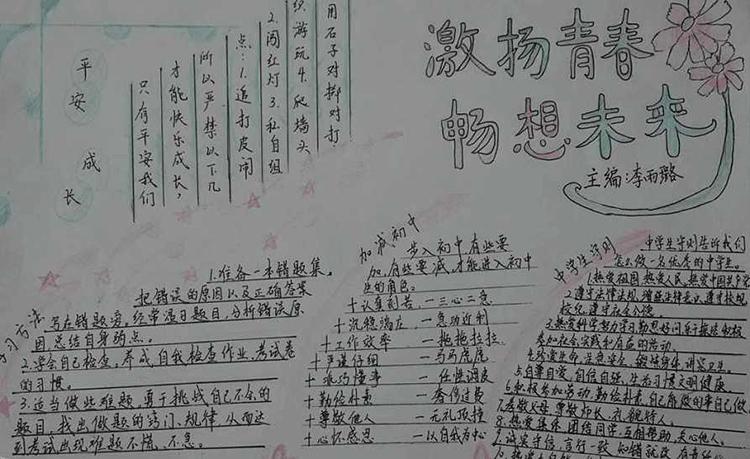 激扬青春
畅想未来
主编:李雨璐
平安成长
只有平安我们
才能快乐成长,
所以严禁以下几
点:1.追打皮闹
2.闯红灯3.私自组
织游玩4.爬墙头
用石子对掷对打
学习方法
1.准备一本错题集。
把错误的原因以及正确答案
写在错题旁,经常温习题目,分析错误原
因,总结自身弱点。
2.学会自己检查,养成自我检查作业、考试卷
的习惯。
3.适当做些难题,勇于挑战自己不会的
题目,找出做题的窍门、规律,从而达
到考试出现难题不慌、不急。
加减初中
步入初中有些要
加,有些要减,才能进入初中
生的角色。
+认真刻苦 - 三心二意
+沉稳满足 - 急功近利
+工作效率 - 拖拖拉拉
+严谨仔细 - 马马虎虎
+乖巧懂事 - 任性调皮
+勤俭朴素 - 奢侈过费
+尊敬他人 - 无礼顶撞
+心怀感恩 - 以自我为中心
中学生守则
中学生守则告诉我们
怎么做一名优秀的中学生。
1.热爱祖国,热爱人民,热爱中国共产党
2.遵守法律法规,增强法律意识。遵守校规
校纪,遵守社会公德。
3.热爱科学,努力学习,勤思好问,乐于探究,积极
参加社会实践和有益的活动。
4.珍爱生命,注意安全,锻炼身体,讲究卫生。
5.自尊自爱,自信自强,生活习惯文明健康。
6.积极参加劳动,勤俭朴素,自己能做的事自己做
7.孝敬父母,尊敬师长,礼貌待人。
8.热爱集体,团结同学,互相帮助,关心他人。
9.诚实守信,言行一致,知错就改,有责任